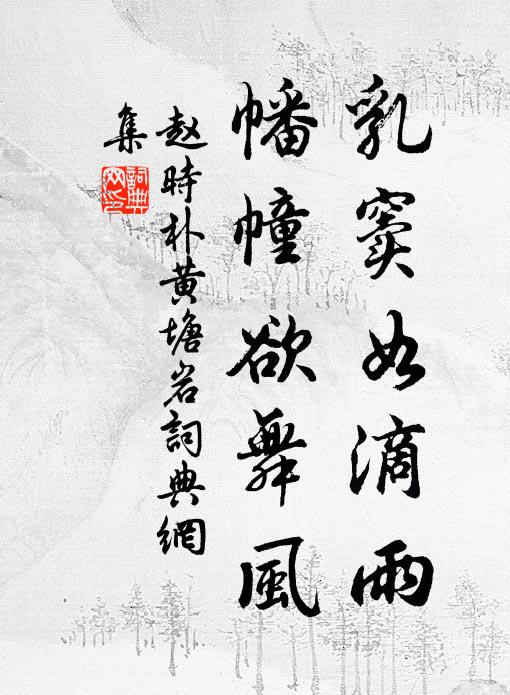 乳窦如滴雨
幡幢欲舞風
赵時朴黄塘岩詞典網
集
詞典網印